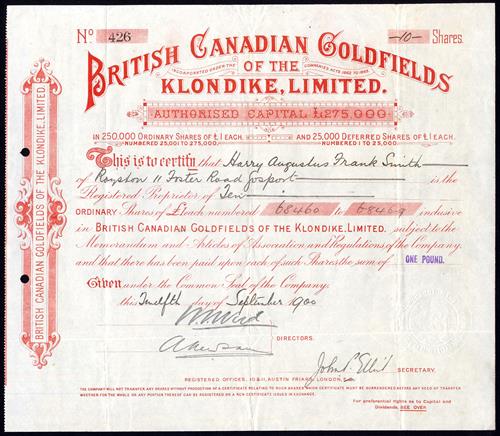 No 426 -10- Shares.
BRITISH CANADIAN GOLDFIELDS
INCORPORATED UNDER THE OF THE COMPANIES ACTS 1862 TO 1893
KLONDIKE, LIMITED.
AUTHORISED CAPITAL £275,000
IN 250,000 ORDINARY SHARES OF £1 EACH AND 25,000 DEFERRED SHARES OF £1 EACH
NUMBERED 25,001 TO 275,000 NUMBERED 1 TO 25,000
This is to certify that Harry Augustus Frank Smith
of Royston 11 Foster Road Gosport is the
Registered Proprietor of Ten
ORDINARY Shares of £1 each numbered 68460 to 68469 inclusive
in BRITISH CANADIAN GOLDFIELDS OF THE KLONDIKE, LIMITED. subject to the
Memorandum and Articles of Association and Regulations of the Company,
and that there has been paid upon each of such Shares the sum of ONE POUND.
Given under the Common Seal of the Company:
this Twelfth day of September 1900
DIRECTORS.
John Elliot SECRETARY.
REGISTERED OFFICES, 10 & 11, AUSTIN FRIARS, LONDON,
THE COMPANY WILL NOT TRANSFER ANY SHARES WITHOUT THE PRODUCTION OF A CERTIFICATE RELATING TO SUCH SHARES WHICH CERTIFICATE MUST BE SURRENDERED BEFORE ANY DEED OF TRANSFER
WHETHER FOR THE WHOLE OR ANY PORTION THEREOF CAN BE REGISTERED OR A NEW CERTIFICATE ISSUED IN EXCHANGE.
For preferential rights as to Capital and
Dividends, SEE OVER
BRITISH CANADIAN GOLDFIELDS OF THE KLONDIKE, LIMITED.